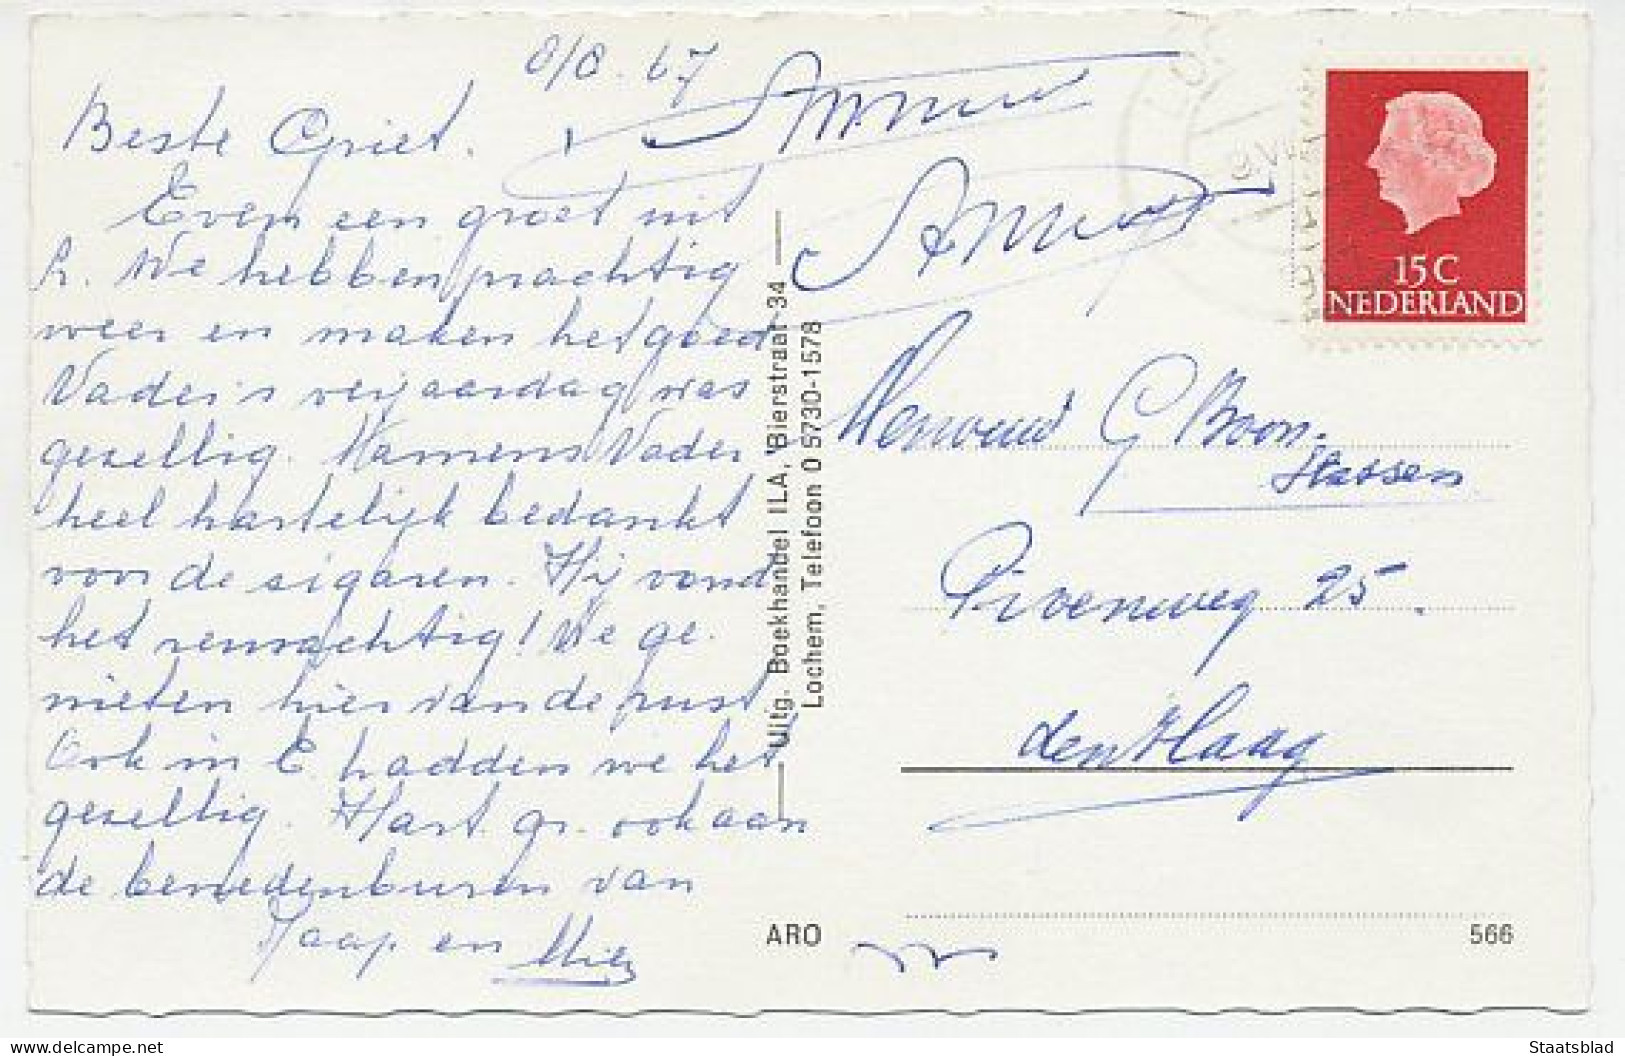 8/8. 67
Beste Griet.
Even een groet uit
L. We hebben prachtig
weer en maken het goed
Vader's verjaardag was
gezellig. Namens Vader
heel hartelijk bedankt
voor de sigaren. Hij vond
het reusachtig! We ge-
nieten hier van de rust
Ook in E. hadden we het
gezellig. Hart. gr. ook aan
de benedenburen van
Jaap en Mies
Uitg. Boekhandel ILA, Bierstraat 34
Lochem, Telefoon 0 5730-1578
15 C
NEDERLAND
Mevrouw G Boon-
Stassen
Pioenweg 25.
den Haag
ARO
566
Staatsblad